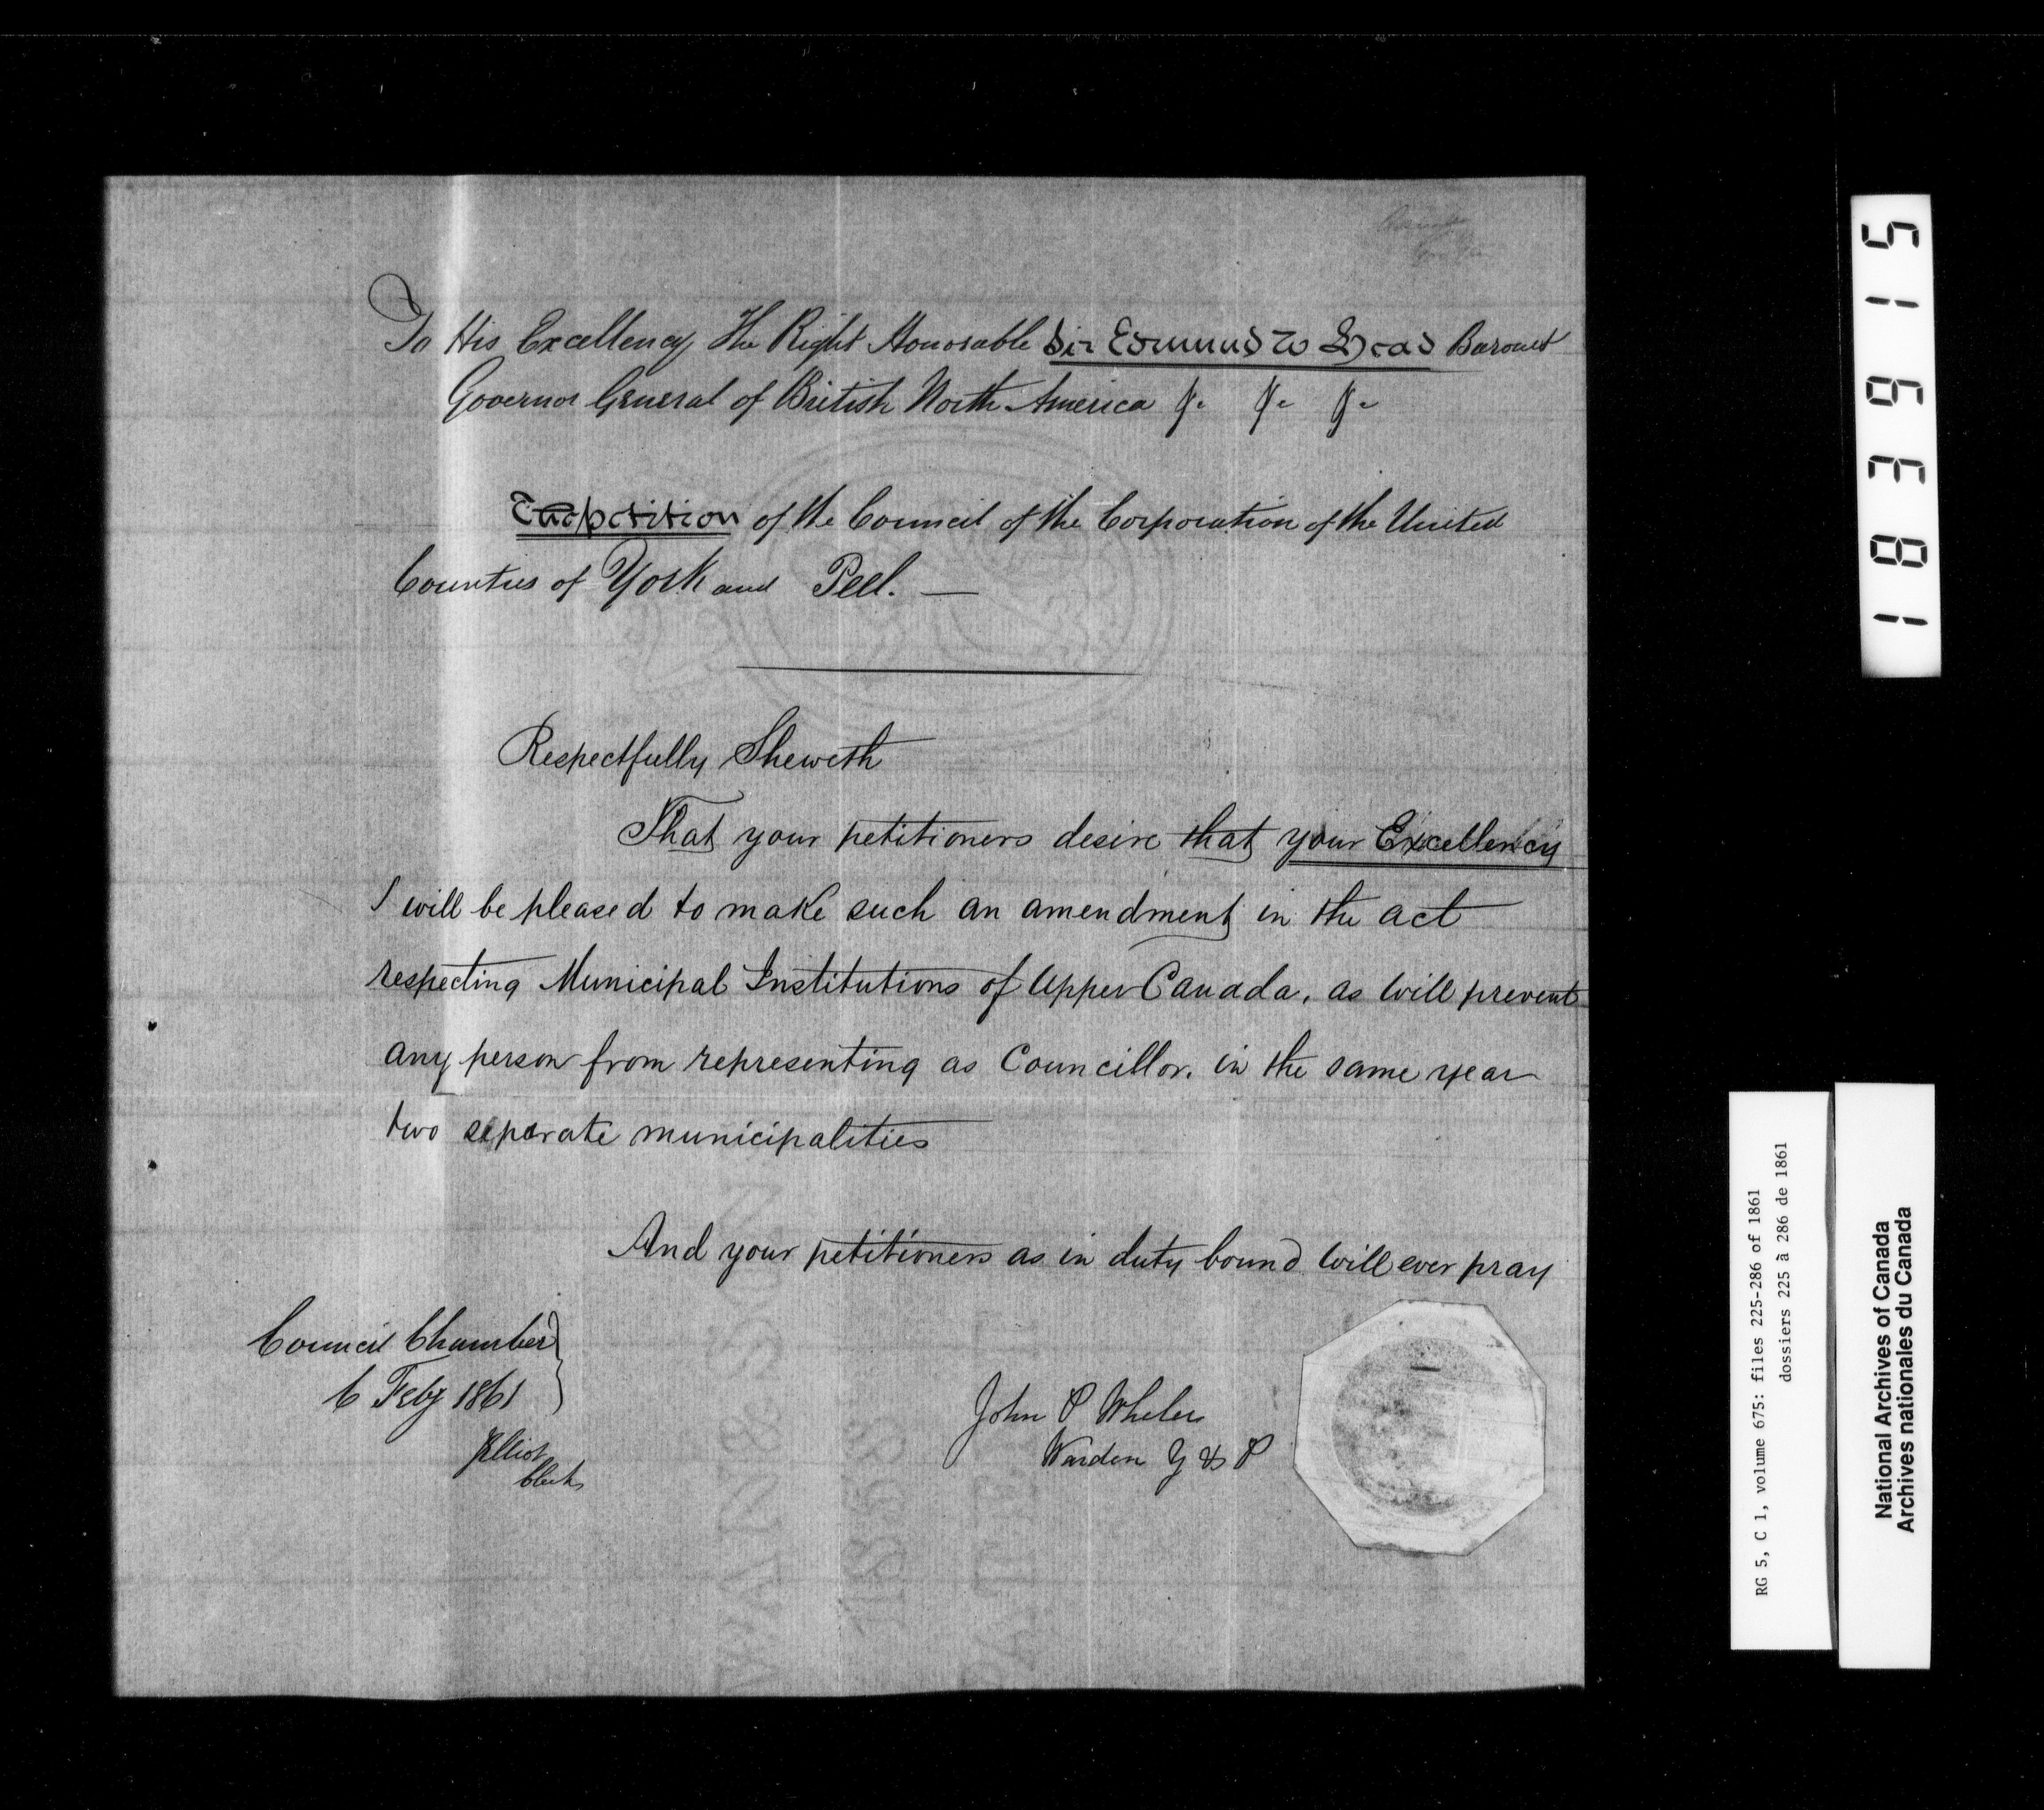 To His Excellency The Right Honorable Sir Edmund W Head Baronet
Governor General of British North America &c &c &c
The petition of the Council of the Corporation of the United
Counties of York and Peel. —
Respectfully Sheweth
That your petitioners desire that your Excellency
will be pleased to make such an amendment in the act
respecting Municipal Institutions of Upper Canada, as will prevent
any person from representing as Councillor. in the same year
two separate municipalities
And your petitioners as in duty bound will ever pray
Council Chamber
6 Feby 1861
Elliot
Clerk
John P Wheler
Warden Y & P
183915
RG 5, C 1, volume 675: files 225-286 of 1861
dossiers 225 à 286 de 1861
National Archives of Canada
Archives nationales du Canada